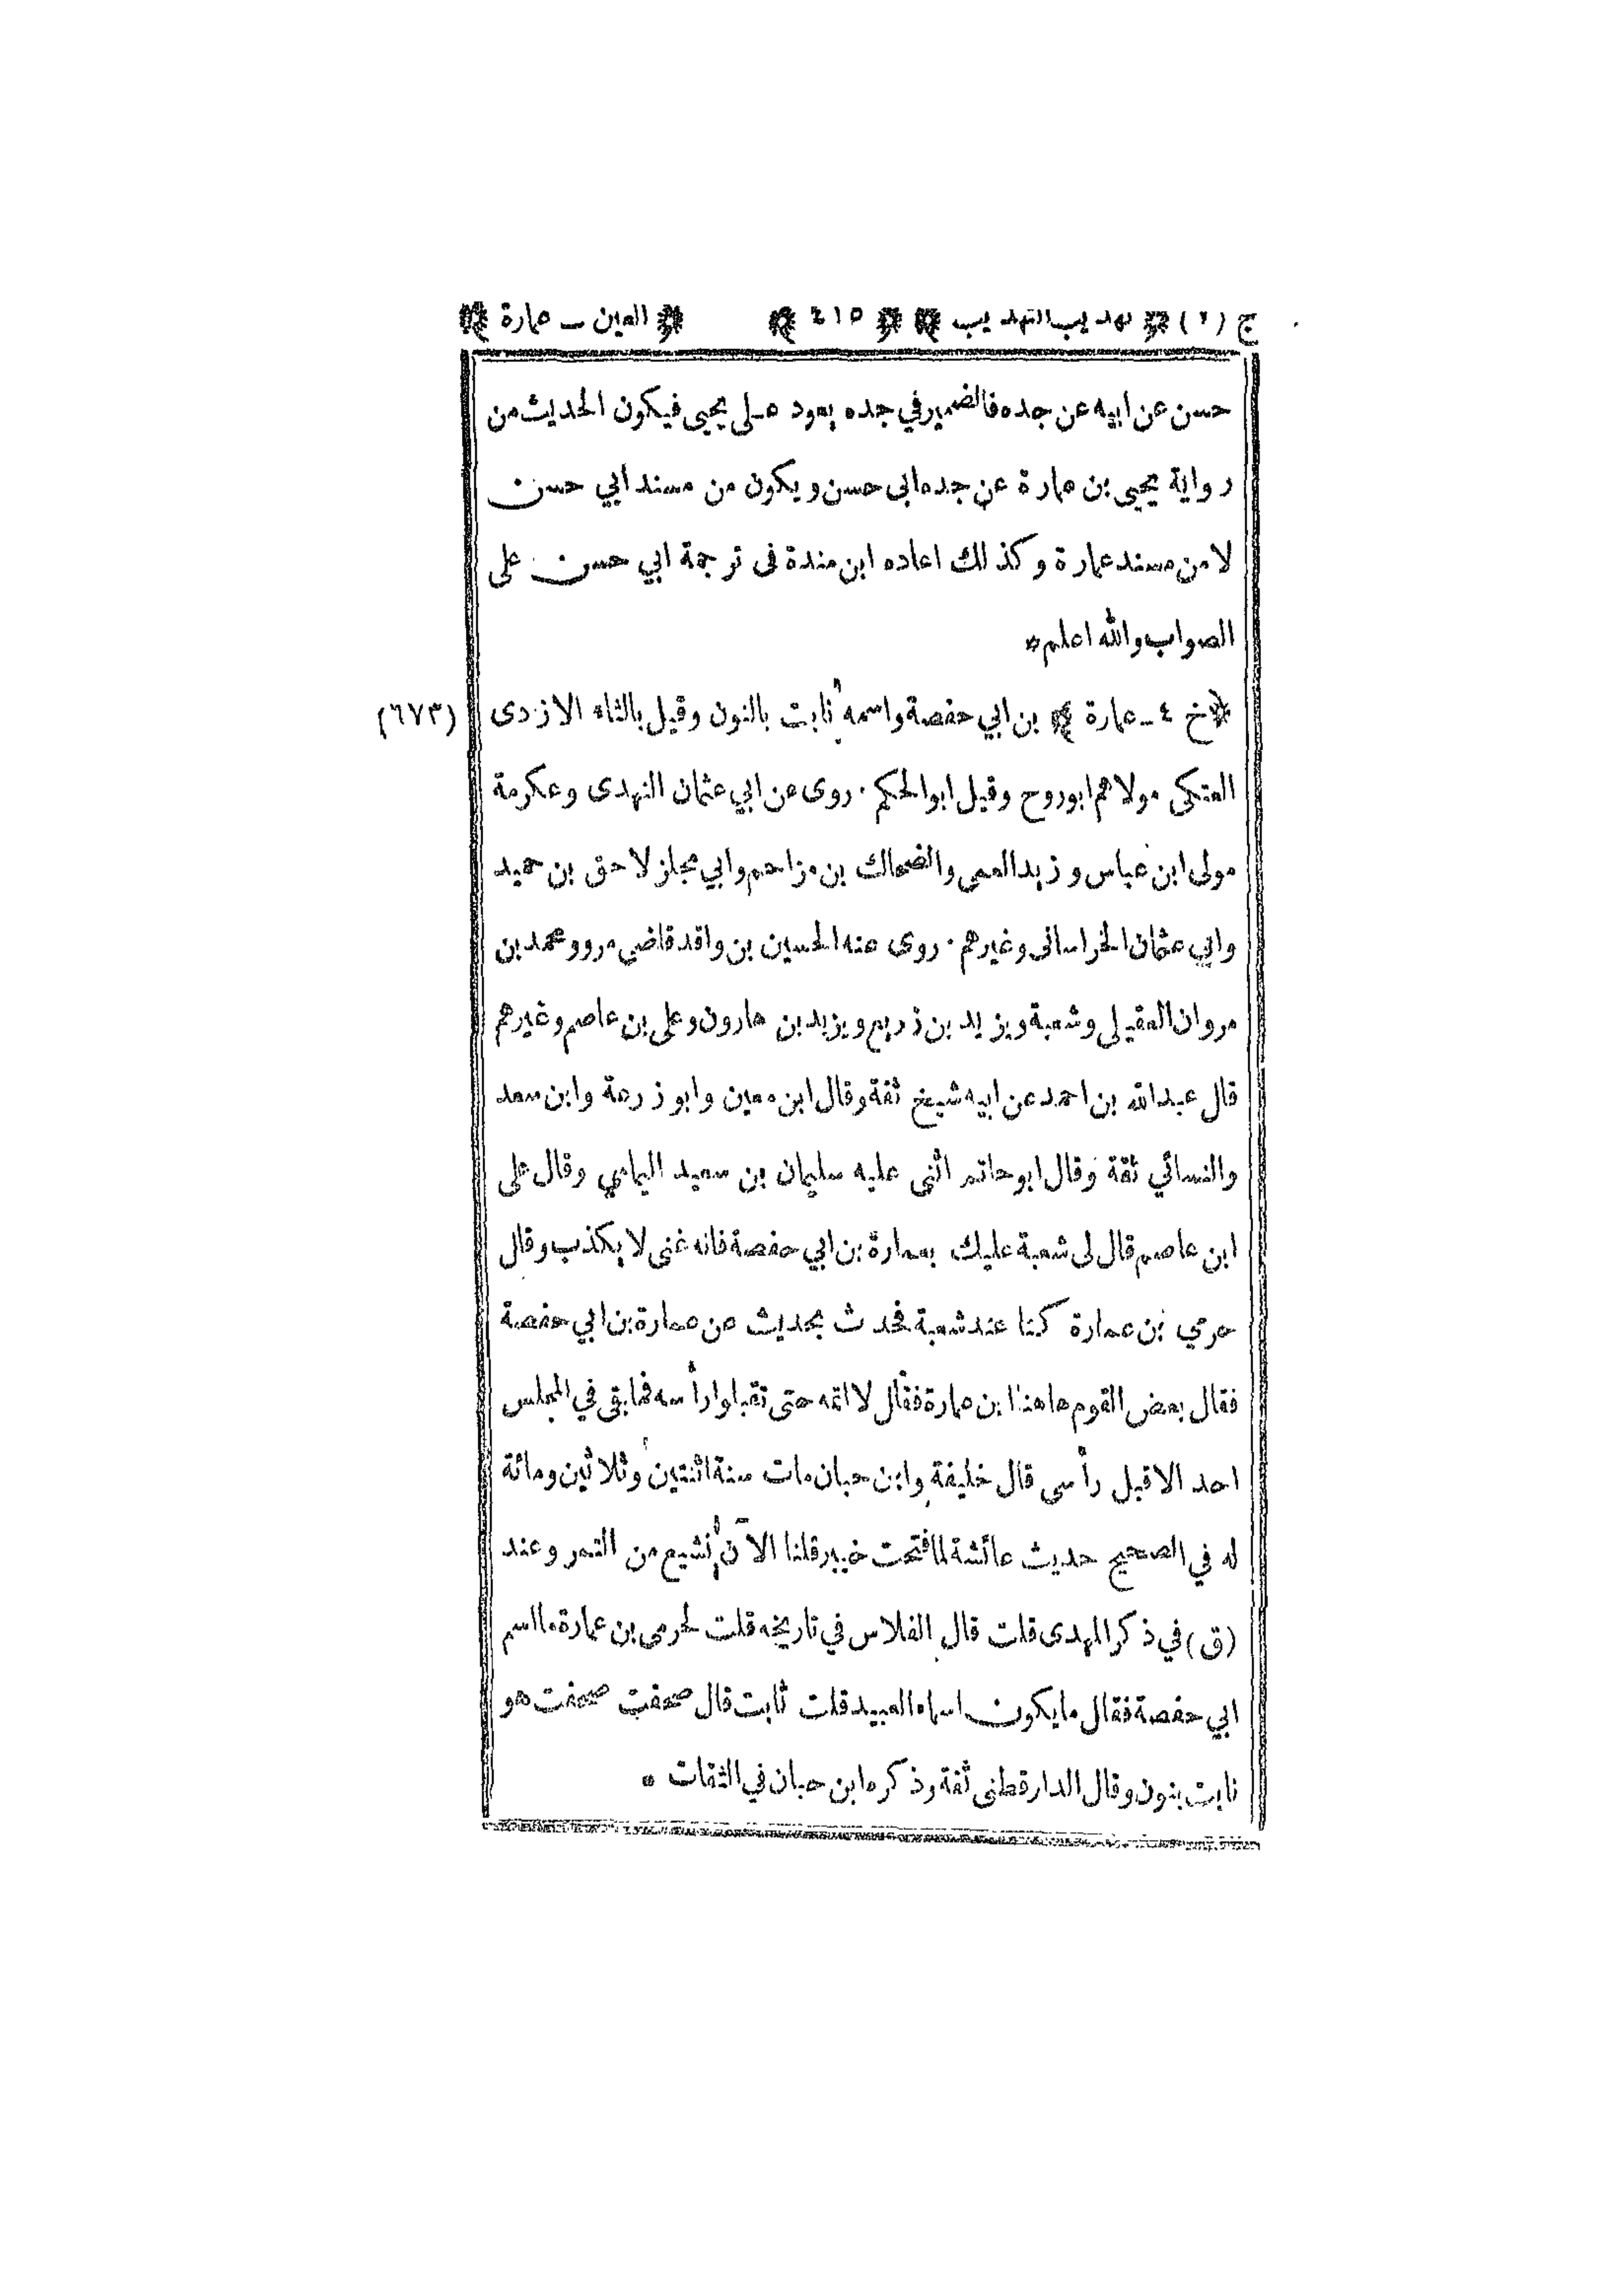 ج (٧) ﴿ تهذيب التهذيب ﴾ ﴿ ٤١٥ ﴾ ﴿ العين - عمارة ﴾
حسن عن ابيه عن جده فالضمير في جده يعود على يحيى فيكون الحديث من
رواية يحيى بن عمارة عن جده ابى حسن ويكون من مسند ابي حسن
لا من مسند عمارة وكذلك اعاده ابن مندة فى ترجمة ابي حسن على
الصواب والله اعلم *
﴿ خ ٤ - عمارة ﴾ بن ابي حفصة واسمه نابت بالنون وقيل بالثاء الازدى (٦٧٣)
العتكى مولاهم ابوروح وقيل ابوالحكم . روى عن ابي عثمان النهدى وعكرمة
مولى ابن عباس وزيد العمي والضحاك بن مزاحم وابي مجلز لاحق بن حميد
وابي عثمان الخراسانى وغيرهم . روى عنه الحسين بن واقد قاضي مرو ومحمد بن
مروان العقيلي وشعبة ويزيد بن زريع ويزيد بن هارون وعلي بن عاصم وغيرهم
قال عبدالله بن احمد عن ابيه شيخ ثقة وقال ابن معين وابو زرعة وابن سعد
والنسائي ثقة وقال ابو حاتم اثنى عليه سليمان بن سعيد اليمامي وقال على
ابن عاصم قال لى شعبة عليك بعمارة بن ابي حفصة فانه غنى لا يكذب وقال
حرمي بن عمارة كنا عند شعبة فحدث بحديث عن عمارة بن ابي حفصة
فقال بعض القوم هاهنا ابن عمارة فقال لا اتمه حتى تقبلوا رأسه فما بقى في المجلس
احد الا قبل رأسى قال خليفة وابن حبان مات سنة اثنتين وثلاثين ومائة
له في الصحيح حديث عائشة لما فتحت خيبر قلنا الآن نشبع من التمر وعند
(ق) في ذكر المهدى قلت قال الفلاس في تاريخه قلت لحرمى بن عمارة ما اسم
ابي حفصة فقال ما يكون اسماء العبيد قلت ثابت قال صحفت صحفت هو
نابت بنون وقال الدارقطنى ثقة وذكره ابن حبان في الثقات *